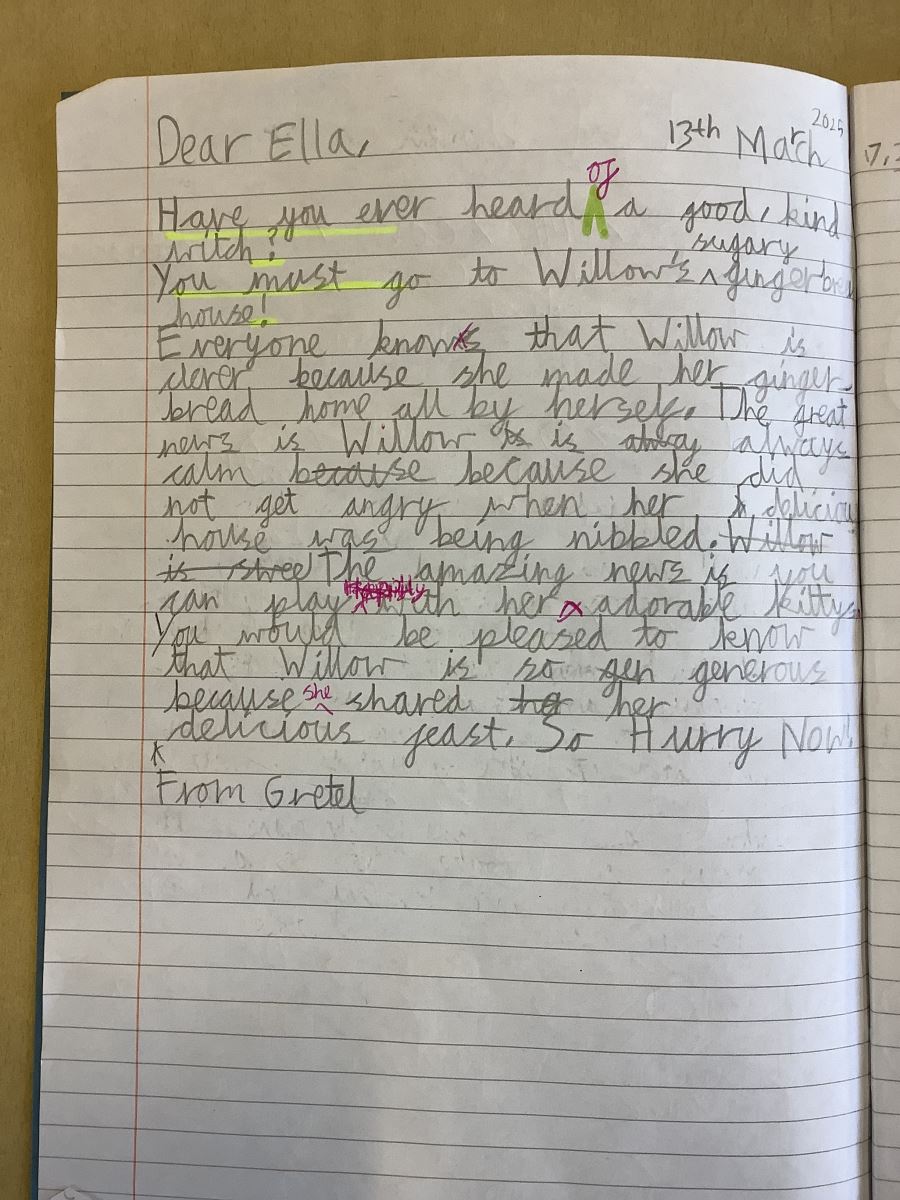 2025
Dear Ella, 13th March
of
Have you ever heard a good, kind
witch? sugary
You must go to Willow's gingerbrea
house!
Everyone knows that Willow is
clever because she made her ginger
bread home all by herself. The great
news is Willow is is alway always
calm because because she did
not get angry when her delicious
house was being nibbled. Willow
is The amazing news is you
can play with her adorable kittys
You would be pleased to know
that Willow is so gen generous
because she shared her her
delicious feast. So Hurry Now!
From Gretel
17,